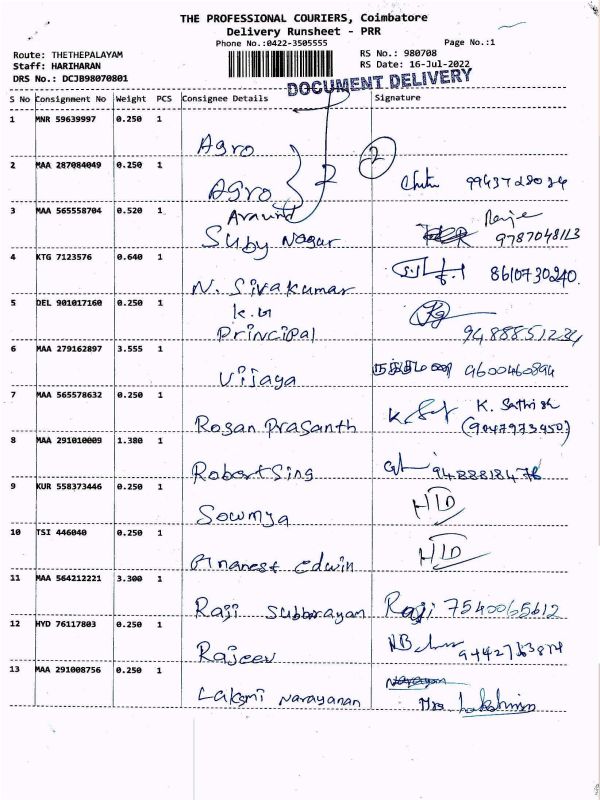 THE PROFESSIONAL COURIERS, Coimbatore
Delivery Runsheet - PRR
Phone No.:0422-3505555 Page No.:1
Route: THETHEPALAYAM RS No.: 980708
Staff: HARIHARAN RS Date: 16-Jul-2022
DRS No.: DCJB98070801
DOCUMENT DELIVERY
S No Consignment No Weight PCS Consignee Details Signature
1 MNR 59639997 0.250 1
Agro 2
2 MAA 287084049 0.250 1
Agro 9943728034
3 MAA 565558704 0.520 1
Around
Suby Nagar 9787048113
4 KTG 7123576 0.640 1
N. Sivakumar 8610730240.
5 DEL 901017160 0.250 1
K.G
Principal 9488851234
6 MAA 279162897 3.555 1
Vijaya 9600460894
7 MAA 565578632 0.250 1
K. Sathish
Rosan Prasanth (9047973950)
8 MAA 291010009 1.380 1
Robertsing 9488818476
9 KUR 558373446 0.250 1
Sowmya H/D
10 TSI 446040 0.250 1
Edwin H/D
11 MAA 564212221 3.300 1
Raji Subbarayan Raji 7540065612
12 HYD 76117803 0.250 1
Rajeev
13 MAA 291008756 0.250 1
Laksmi Narayanan